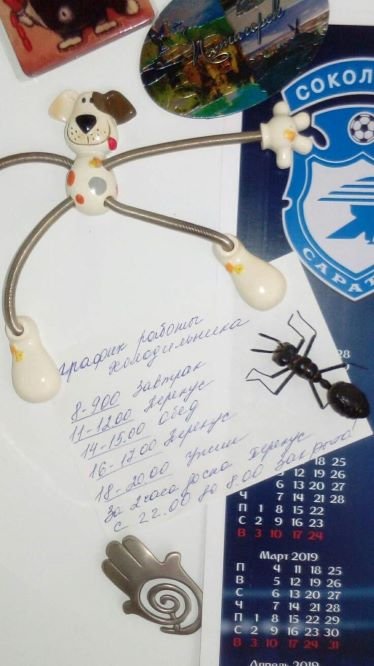 СОКОЛ
САРАТ
график работы
холодильника
8-900 завтрак
11-1200 Перекус
14-15.00 Обед
16-17.00 Перекус
18-2000 Ужин
За 2 часа до сна Перекус
с 22.00 до 8.00 Закрыто!
18 25
5 12 19 26
С 6 13 20 27
Ч 7 14 21 28
П 1 8 15 22
С 2 9 16 23
В 3 10 17 24
Март 2019
П 4 11 18 25
В 5 12 19 26
С 6 13 20 27
Ч 7 14 21 28
П 1 8 15 22 29
С 2 9 16 23 30
В 3 10 17 24 31
Апрель 2019